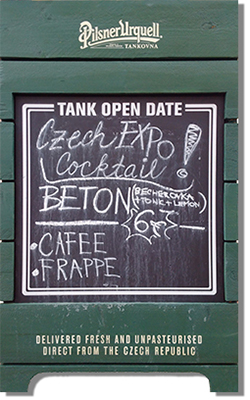 Pilsner Urquell
TANKOVNA
TANK OPEN DATE
Czech EXPO
Cocktail !
BETON (BECHEROVKA
+TONIK+LEMON)
63,-
• CAFEE
• FRAPPE
DELIVERED FRESH AND UNPASTEURISED
DIRECT FROM THE CZECH REPUBLIC